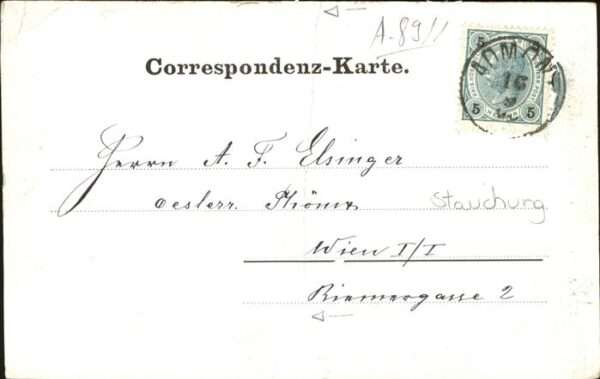 A-89/1
Correspondenz-Karte.
5
5 5
16
9
Herrn A. F. Elsinger
oesterr. Phönix
Stauchung
Wien I/I
Riemergasse 2